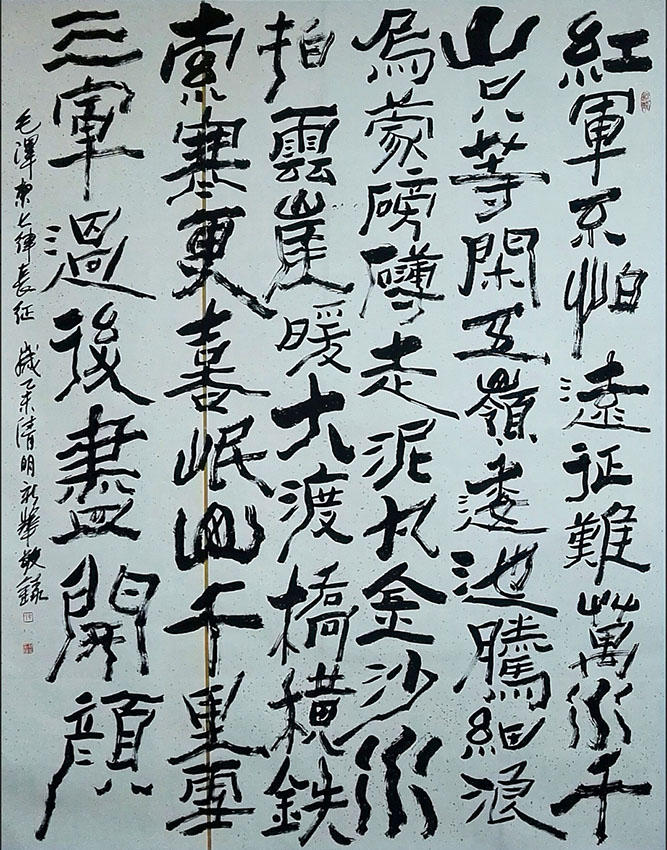 紅軍不怕遠征難萬水千
山只等閑五嶺逶迤騰細浪
烏蒙磅礴走泥丸金沙水
拍雲崖暖大渡橋橫鉄
索寒更喜岷山千里雪
三軍過後盡開顏
毛澤東七律長征 歲乙未清明